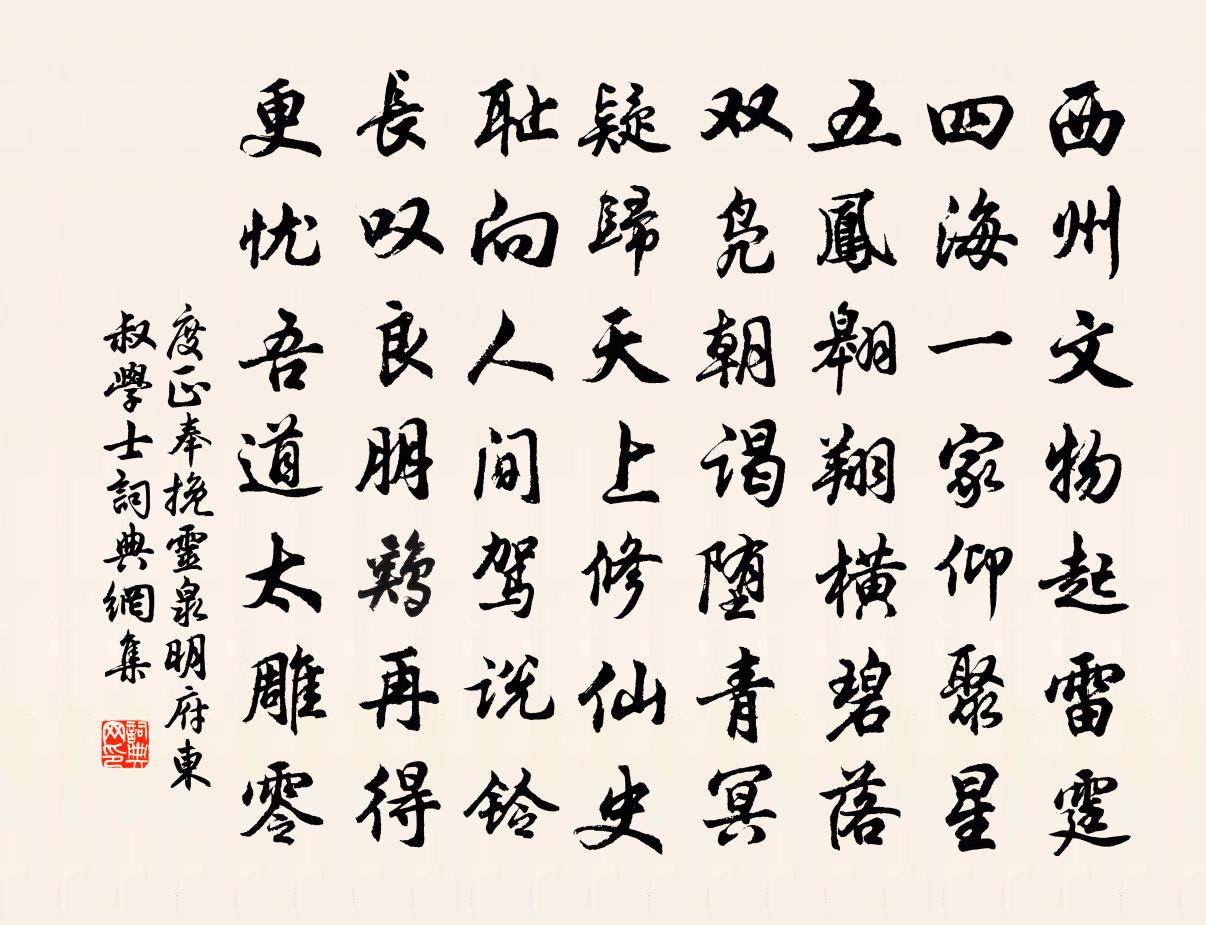 西州文物起雷霆
四海一家仰聚星
五鳳翱翔橫碧落
双凫朝谒堕青冥
疑歸天上修仙史
耻向人间驾说铃
長叹良朋鷄再得
更忧吾道太雕零
度正奉挽靈泉明府東
叔學士詞典網集
詞典
网印